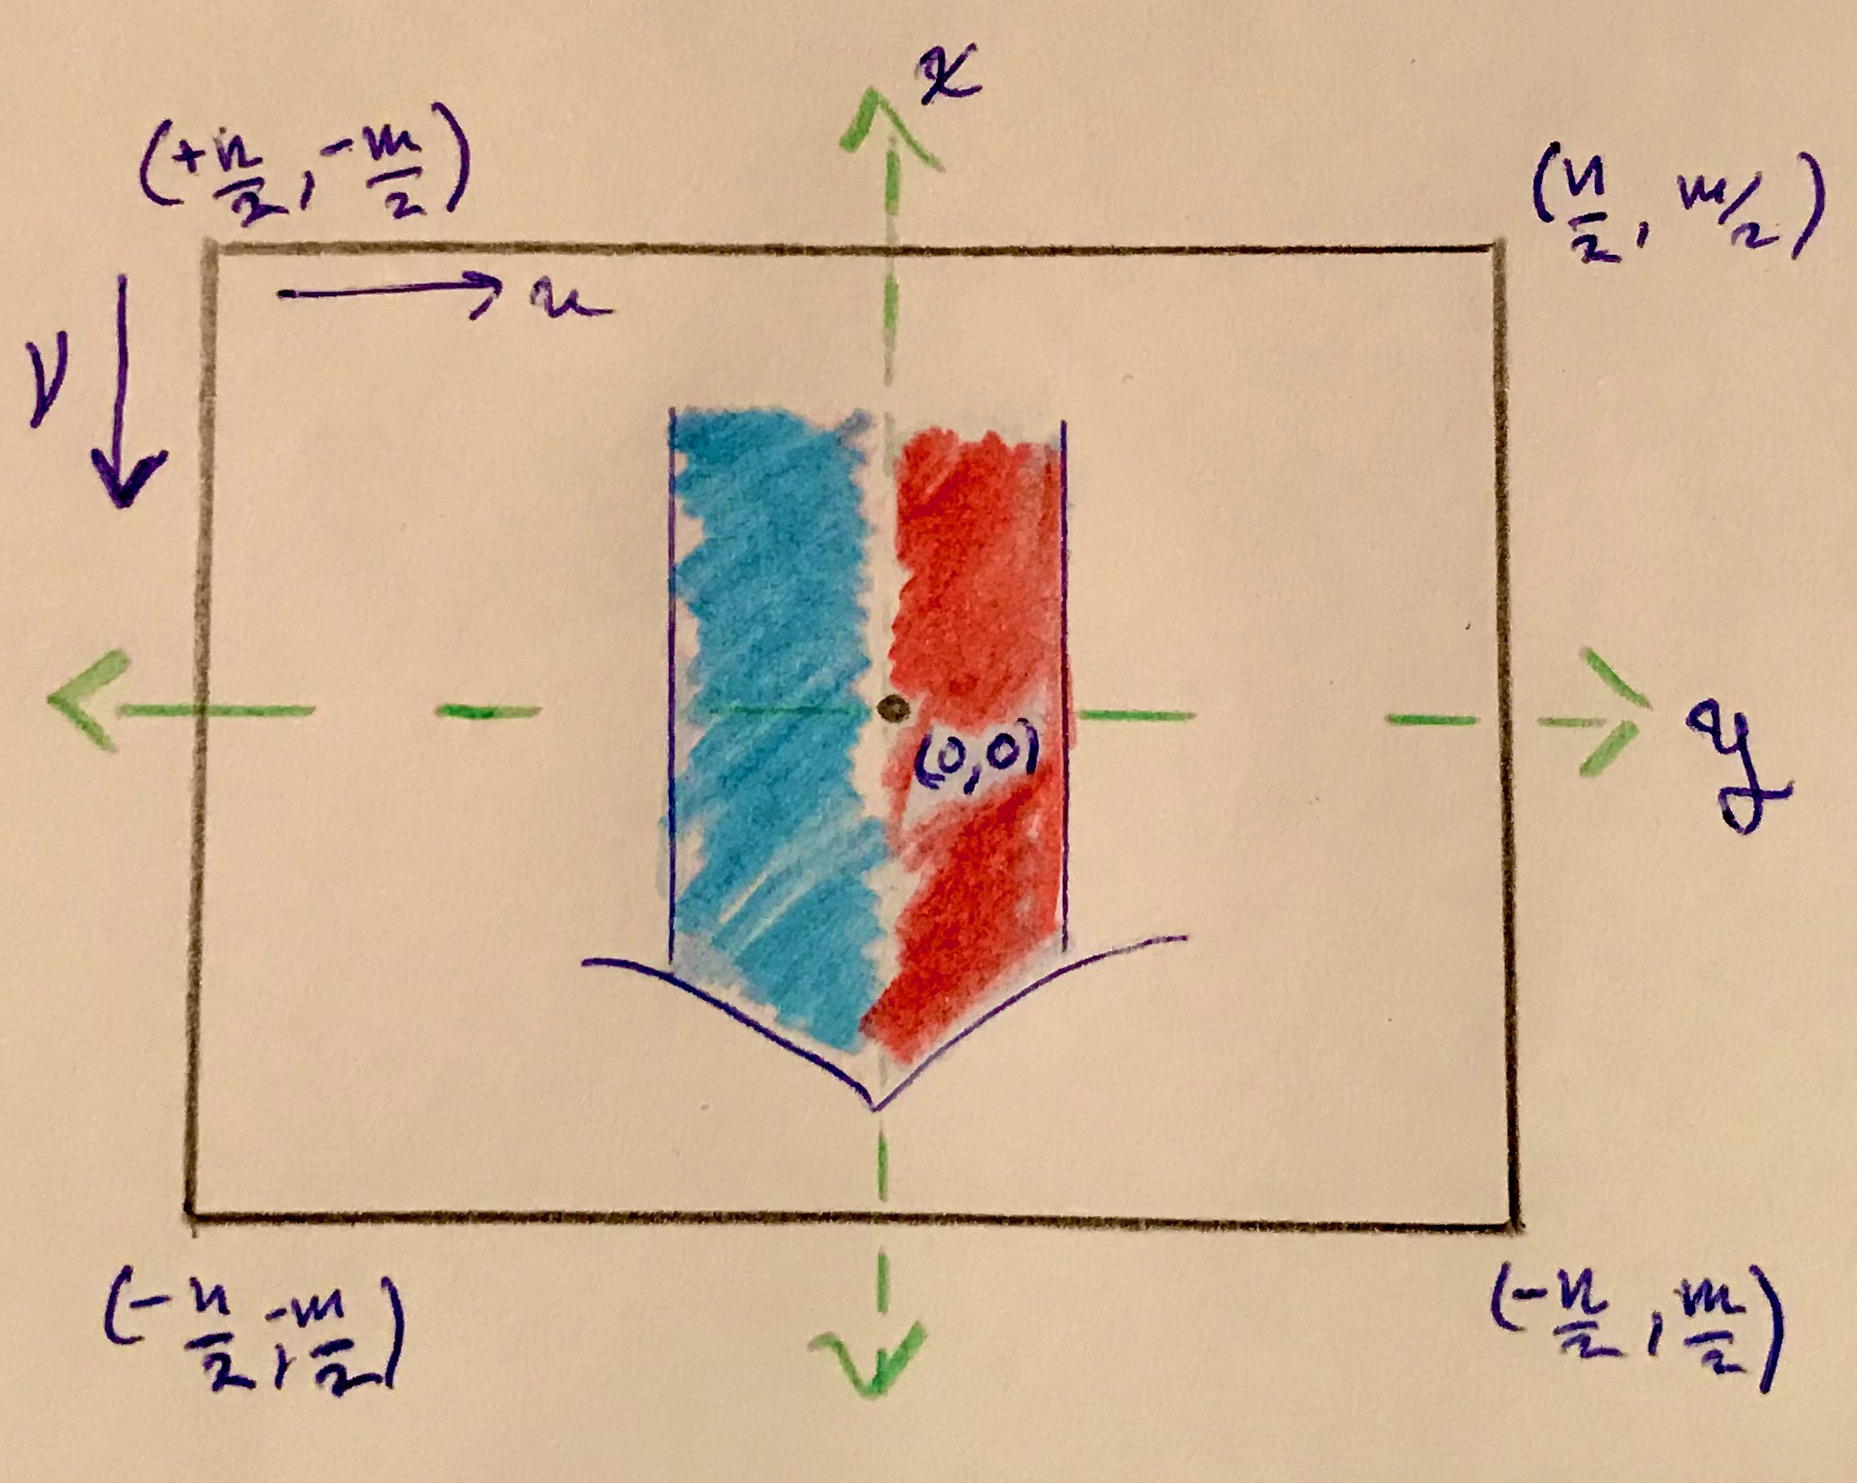 x
(+n/2, -m/2)
(n/2, m/2)
u
V
(0,0)
y
(-n/2, -m/2)
(-n/2, m/2)